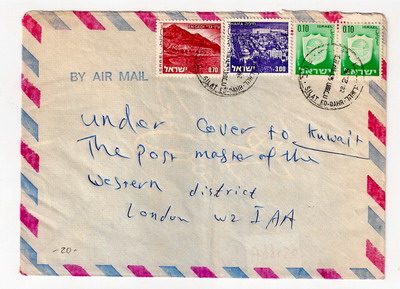 0.70
ישראל
3.00
ישראל
0.10
ישראל
0.10
ישראל
SILAT ED-DAHR
BY AIR MAIL
under cover to Kuwait
The post master of the
western district
London W2 1AA
-20-